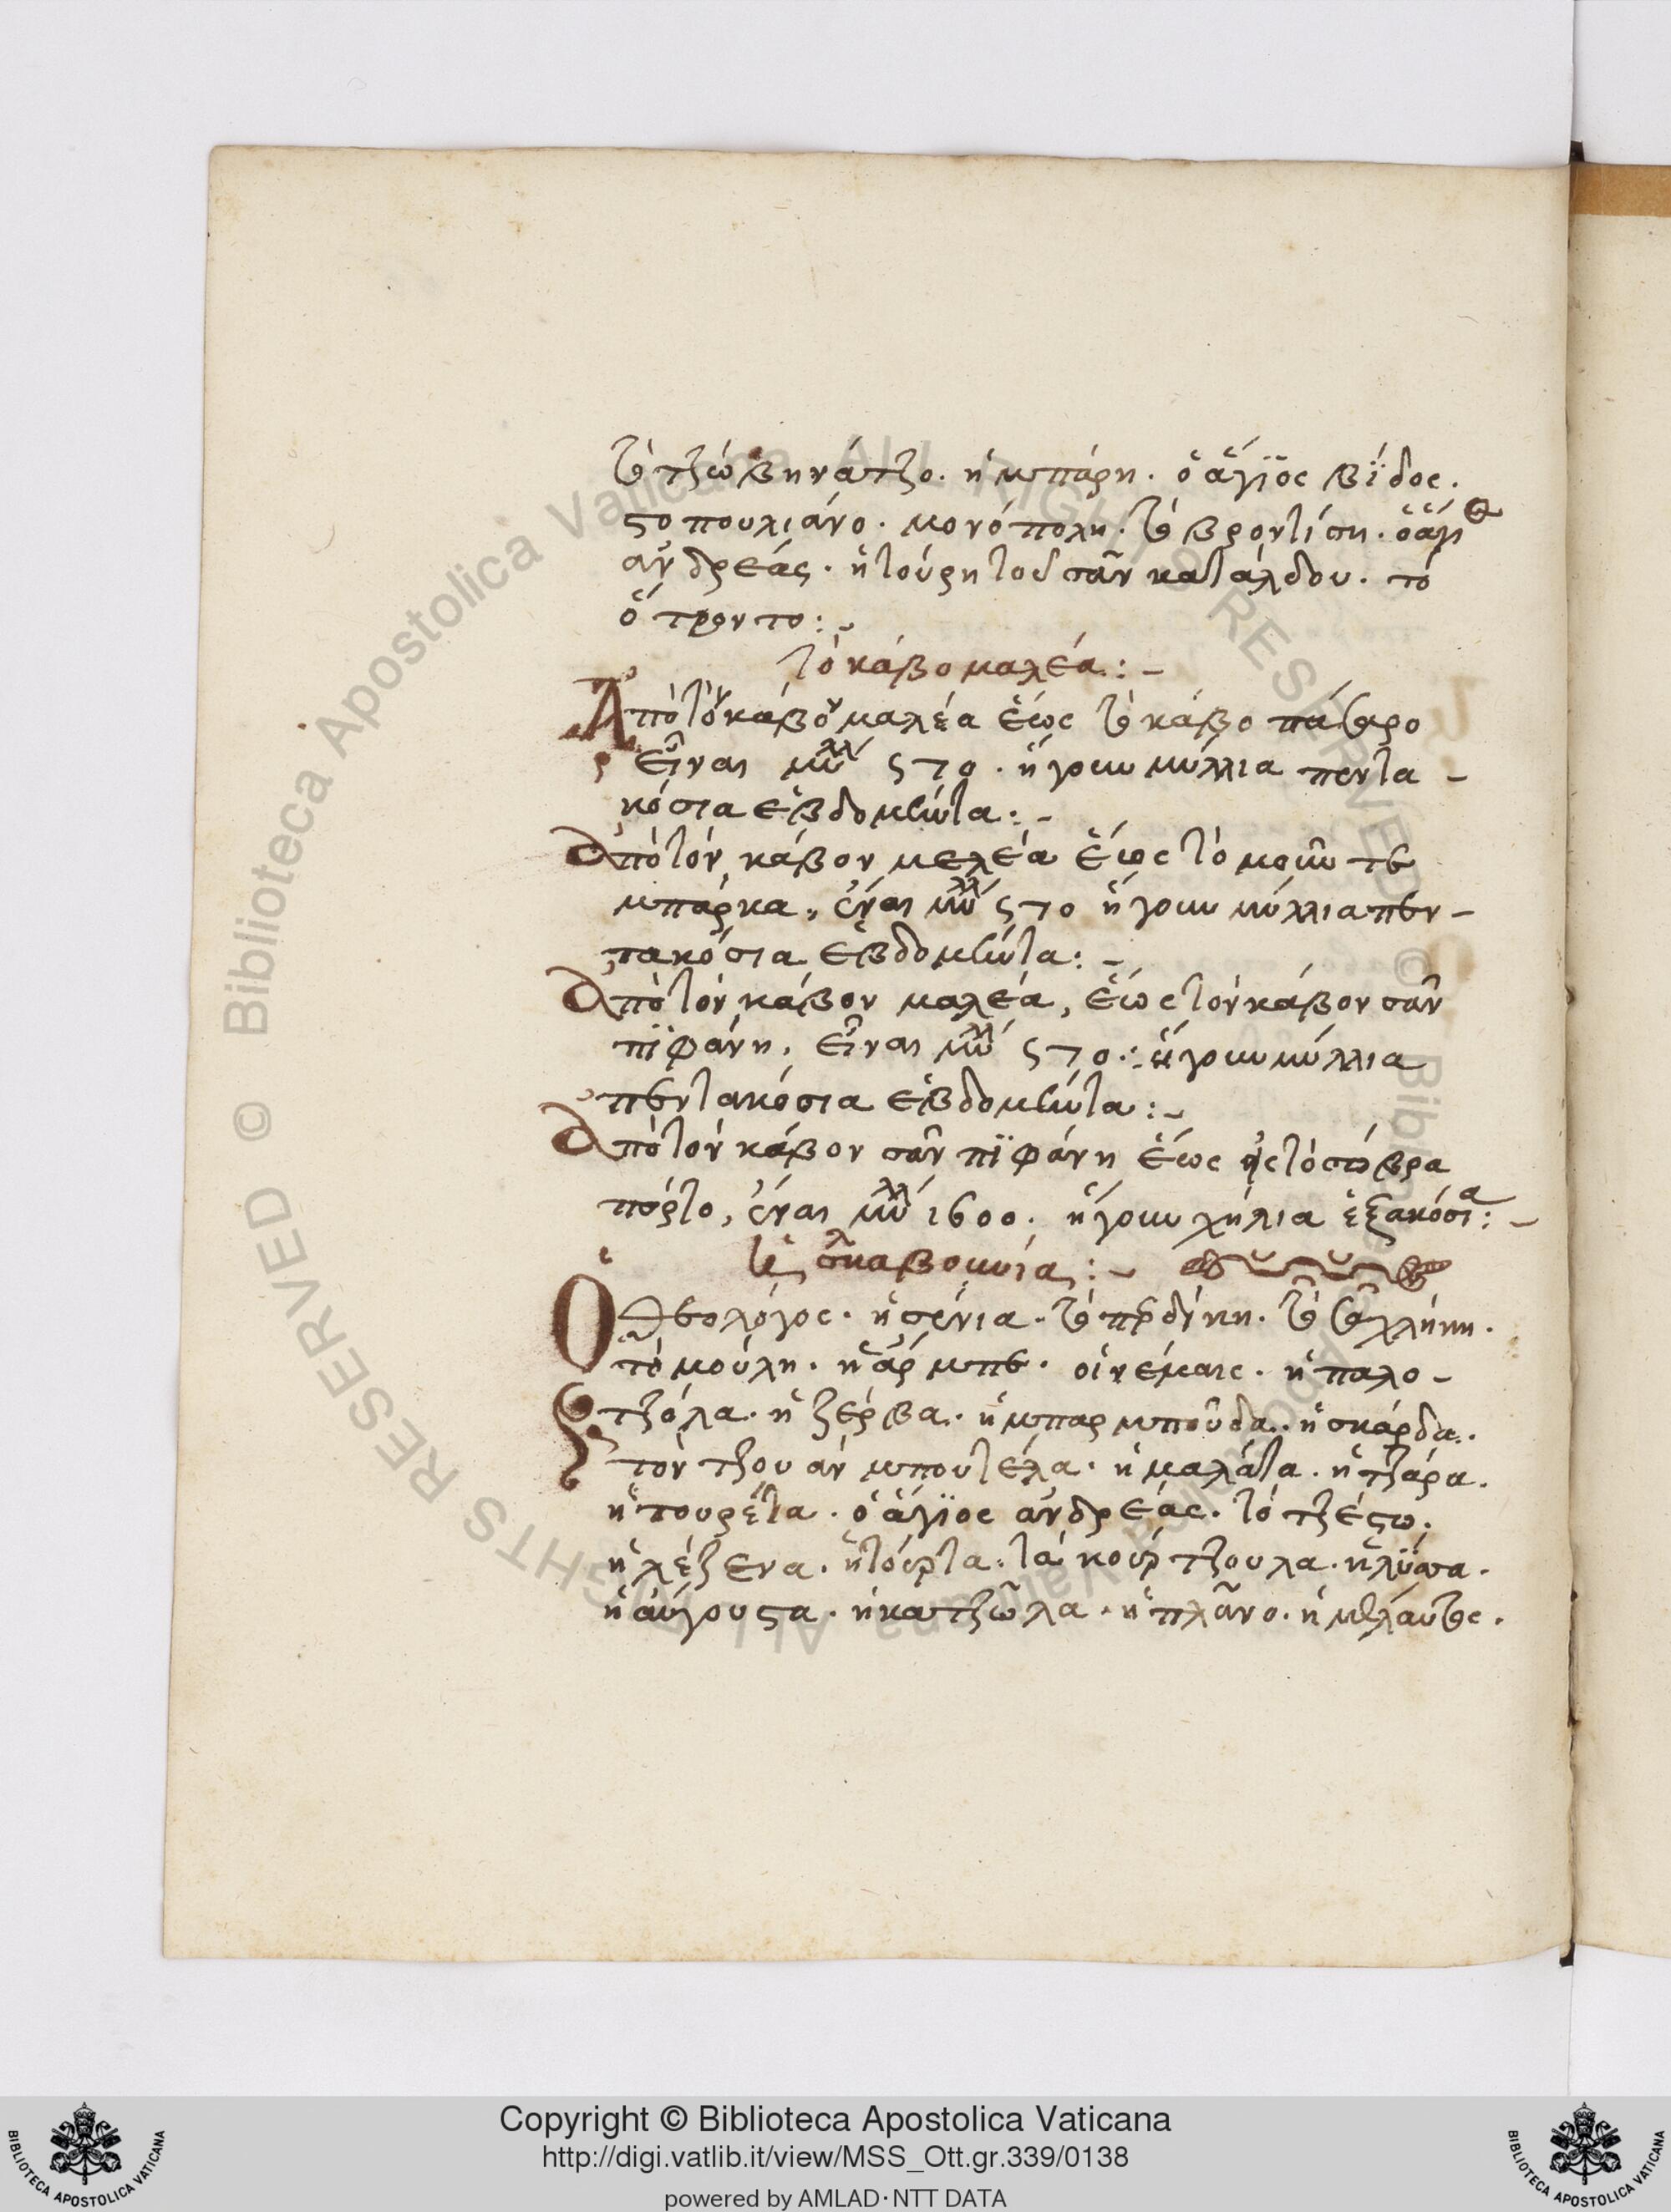 τὸ τζωβηνάτζο. ἡ μπάρη. ὁ ἅγϊος βΐδος.
ςο πουλιάνο. μονόπολη. τὸ βροντίση. ὁ ἅγιος
ἀνδρέας. ἡ τούρη τοῦ σᾶν κατάλδου. τὸ
ὄτροντο:~
τὸ κάβο μαλέα:~
Ἀπὸ τὸν κάβον μαλέα ἕως τὸ κάβο
εἶναι μϋλλ 570. ἤγουν μύλλια πεντα-
κόσια ἑβδομῆντα:~
Ἀπὸ τὸν κάβον μελέα ἕως τὸ
μπάρκα, ἔναι μϋλλ 570 ἤγουν μύλλια πεν-
τακόσια ἑβδομῆντα:~
Ἀπὸ τὸν κάβον μαλέα, ἕως τὸν κάβον σᾶν
πϊφάνη, εἶναι μϋλλ 570: ἤγουν μύλλια
πεντακόσια ἑβδομῆντα:~
Ἀπὸ τὸν κάβον σᾶν πϊφάνη ἕως ἠς τὸ σώβρα
πόρτο, ἔναι μϋλλ 1600. ἤγουν χήλια ἑξακόσια:~
τῆς σκλαβουνίας:~
Ὁ θεολόγος. ἡ σένια. τὸ
τὸ μούλη. ἡ ἄρμπε. οἱ νέμαις. ἡ παλο-
τζόλα. ἡ ζέρβα. ἡ μπαρμποῦδα. ἡ σκάρδα.
τὸν τζουάν μπουτέλα. ἡ μαλάτα. ἡ τζάρα.
ἡ τουρέτα. ὁ ἅγϊος ἀνδρέας. τὸ τζέςω.
ἡ λέζενα. ἡ τόυρτα. τὰ κούρτζουλα. ἡ λύσα.
ἡ ἀύγουςα. ἡ κατζῶλα. ἡ πλᾶνο.
Copyright © Biblioteca Apostolica Vaticana
http://digi.vatlib.it/view/MSS_Ott.gr.339/0138
powered by AMLAD·NTT DATA
BIBLIOTECA APOSTOLICA VATICANA
BIBLIOTECA APOSTOLICA VATICANA